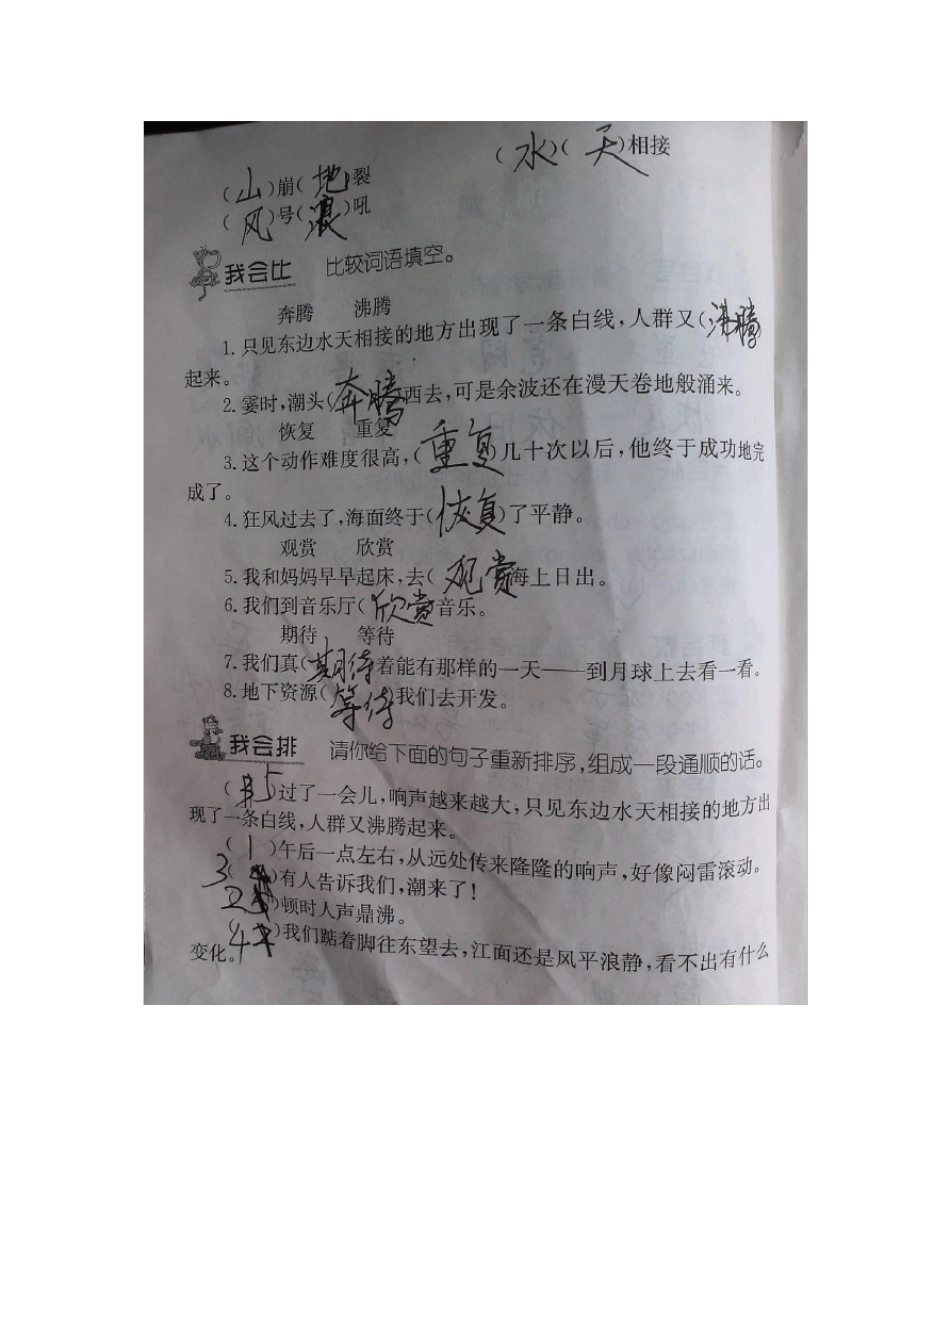 (水)(天)相接
(山)崩(地)裂
(风)号(浪)吼
我会比 比较词语填空。
奔腾 沸腾
1.只见东边水天相接的地方出现了一条白线,人群又(沸腾
起来。
2.霎时,潮头(奔腾西去,可是余波还在漫天卷地般涌来。
恢复 重复
3.这个动作难度很高,(重复)几十次以后,他终于成功地完
成了。
4.狂风过去了,海面终于(恢复)了平静。
观赏 欣赏
5.我和妈妈早早起床,去(观赏海上日出。
6.我们到音乐厅(欣赏音乐。
期待 等待
7.我们真(期待着能有那样的一天——到月球上去看一看。
8.地下资源(等待我们去开发。
我会排 请你给下面的句子重新排序,组成一段通顺的话。
(5)过了一会儿,响声越来越大,只见东边水天相接的地方出
现了一条白线,人群又沸腾起来。
(1)午后一点左右,从远处传来隆隆的响声,好像闷雷滚动。
3()有人告诉我们,潮来了!
2)顿时人声鼎沸。
(4)我们踮着脚往东望去,江面还是风平浪静,看不出有什么
变化。